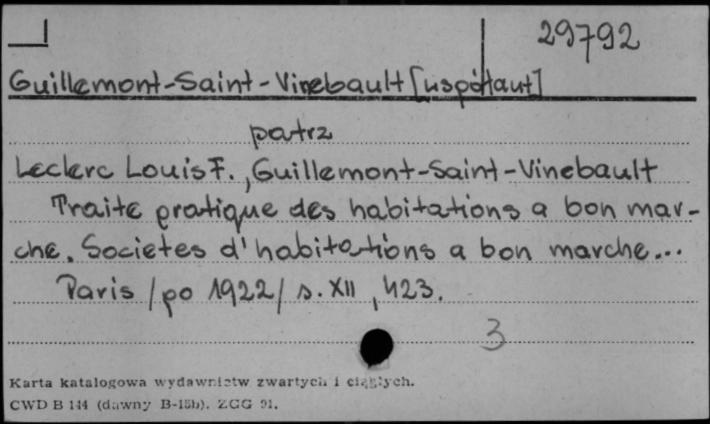 29792
Guillemont-Saint-Vinebault [współaut]
patrz
Leclerc Louis F., Guillemont-Saint-Vinebault
Traite pratique des habitations a bon mar-
che. Societes d'habitations a bon marche...
Paris /po 1922/ s. XII, 423.
3
Karta katalogowa wydawnictw zwartych i ciągłych.
CWD B 144 (dawny B-15b). ZGG 91.